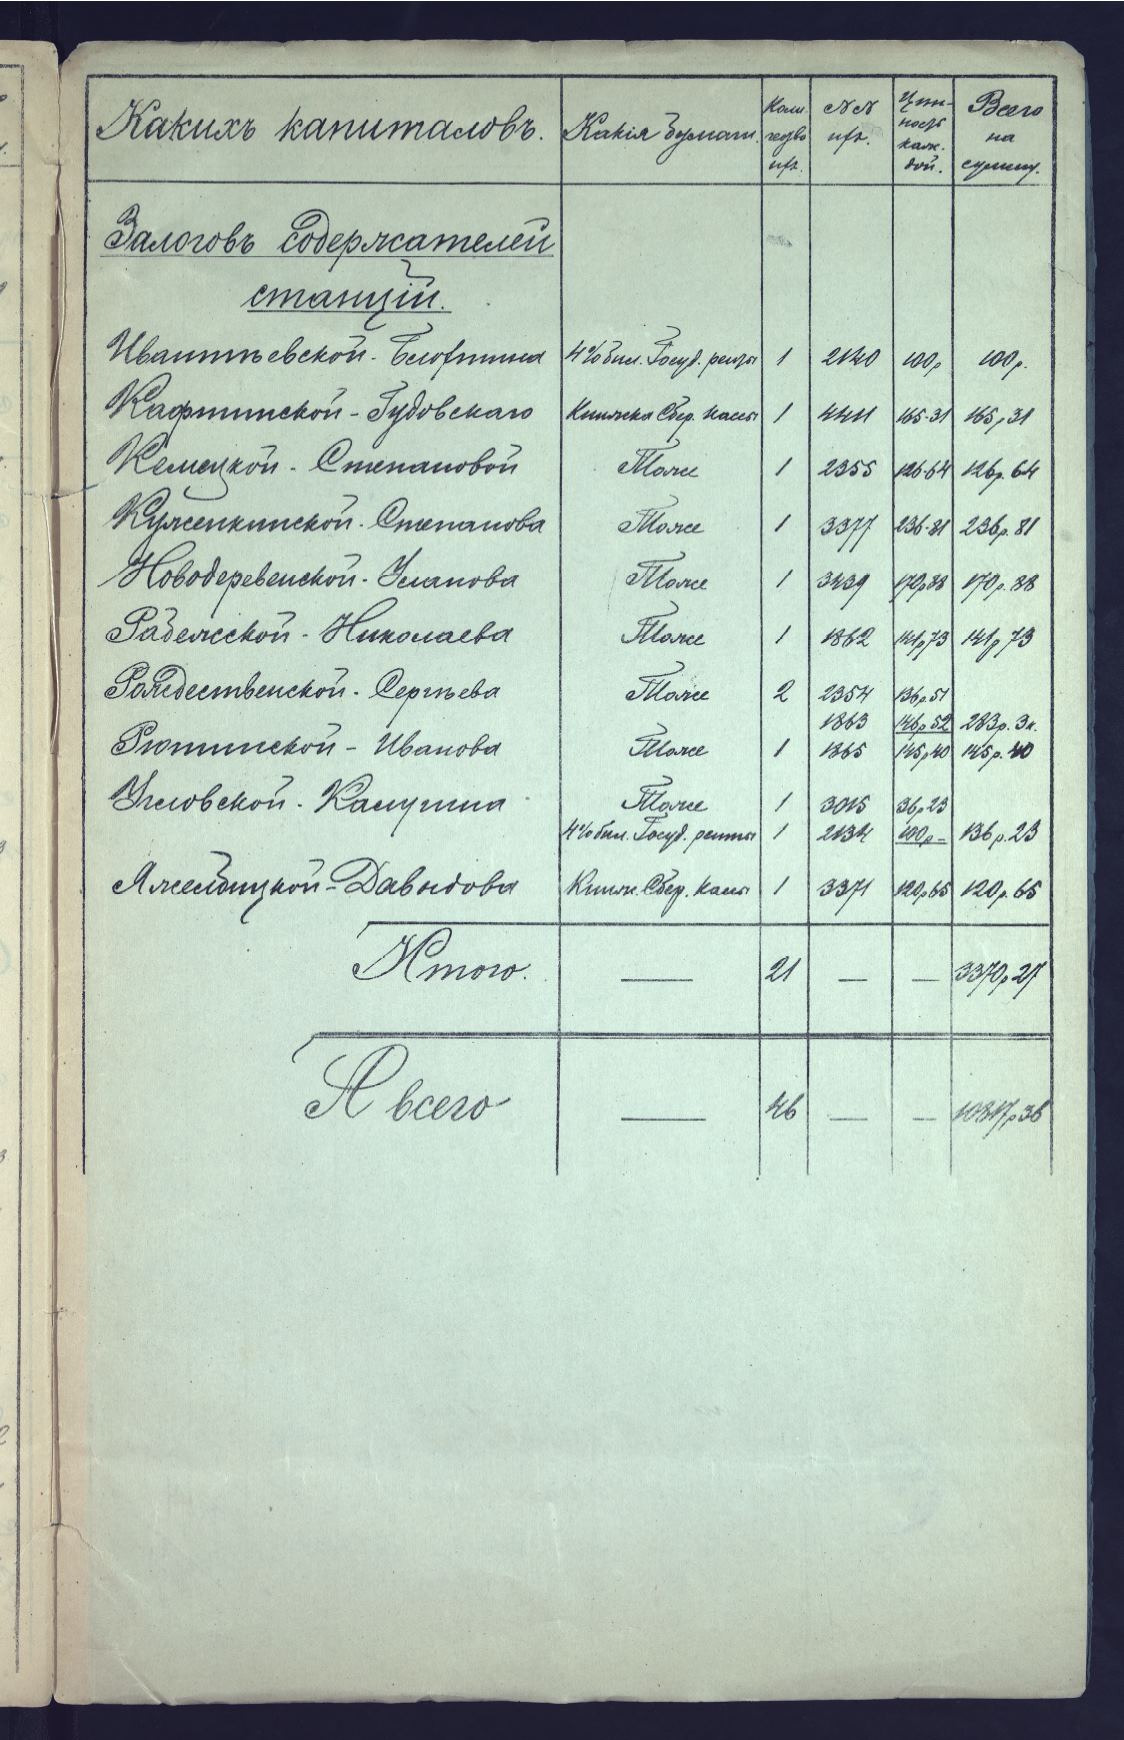 Какихъ капиталовъ. Какія бумаги. Коли-чество ихъ. №№ ихъ. Цѣн-ность каж-дой. Всего на сумму.
Залоговъ содержателей
станцій.
Ивантѣевской - 4% бил. Госуд. ренты 1 2140 100р 100р.
Кафтинской - Гудовскаго Книжка Сбер. кассы 1 4411 165-31 165р31
Кемецкой - Степановой Тоже 1 2355 126-64 126р. 64
Куженкинской - Степанова Тоже 1 3377 236-81 236р. 81
Новодеревенской - Уланова Тоже 1 3439 170р88 170р. 88
Рабежской - Николаева Тоже 1 1862 141р73 141р73
Рождественской - Сергѣева Тоже 2 2354 136р51
1863 146р52 283р. 3к.
Рютинской - Иванова Тоже 1 1865 145р40 145р. 40
Угловской - Калугина Тоже 1 3015 36р23
4% бил. Госуд. ренты 1 2134 100р- 136р. 23
Яжелбицкой - Давыдова Книж. Сбер. кассы 1 3371 120р65 120р. 65
Итого. — 21 — — 3370р27
А всего — 46 — — 10817р36